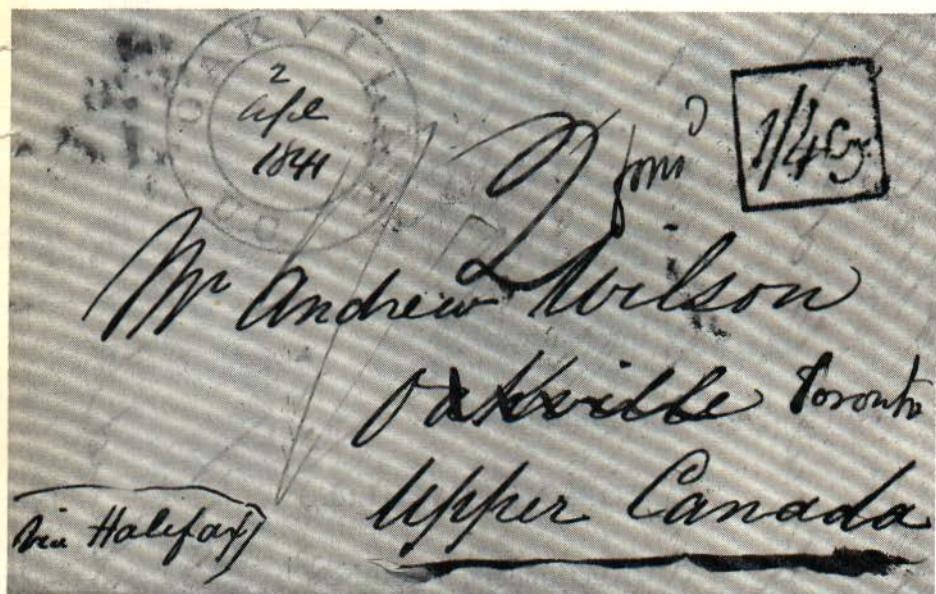 OAKVILLE
2
Apl
1844
1/4 Cy
Mr Andrew Wilson
Oakville Toronto
Upper Canada
(via Halifax)